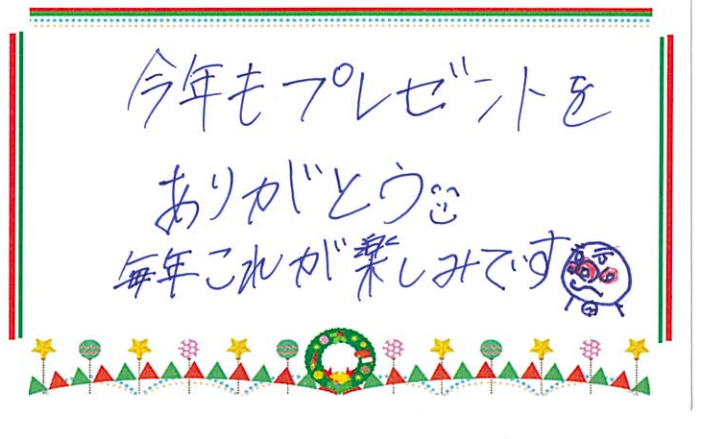 今年もプレゼントを
ありがとう
毎年これが楽しみです